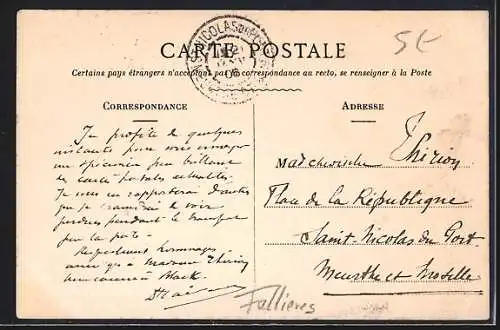 CARTE POSTALE
5€
Certains pays étrangers n'acceptant pas de correspondance au recto, se renseigner à la Poste
CORRESPONDANCE
Je profite de quelques
instants pour vous envoyer
un spécimen peu brillant
de carte postale actuelle.
Je vous en rapporterai d'autres
que je craindrai de voir
perdues pendant le transport
par la poste.
Respectueux hommages
ainsi qu'à Madame Thirion
Black.
ADRESSE
Mademoiselle Thirion
Place de la République
Saint-Nicolas du Port
Meurthe et Moselle
Fallières